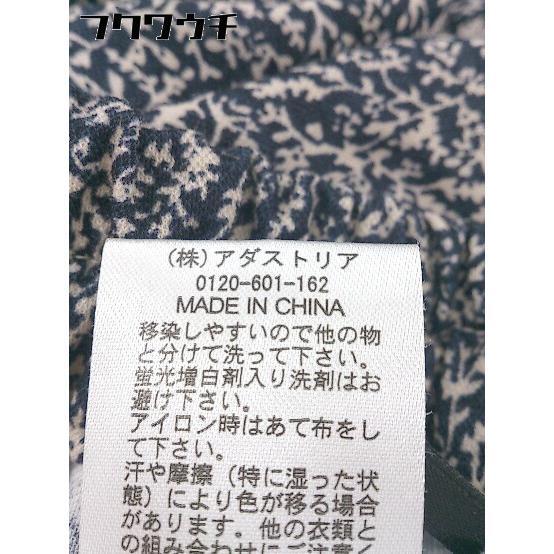 フクワウチ
(株)アダストリア
0120-601-162
MADE IN CHINA
移染しやすいので他の物
と分けて洗って下さい。
蛍光増白剤入り洗剤はお
避け下さい。
アイロン時はあて布をし
て下さい。
汗や摩擦(特に湿った状
態)により色が移る場合
があります。他の衣類と
の組み合わせにご注意く